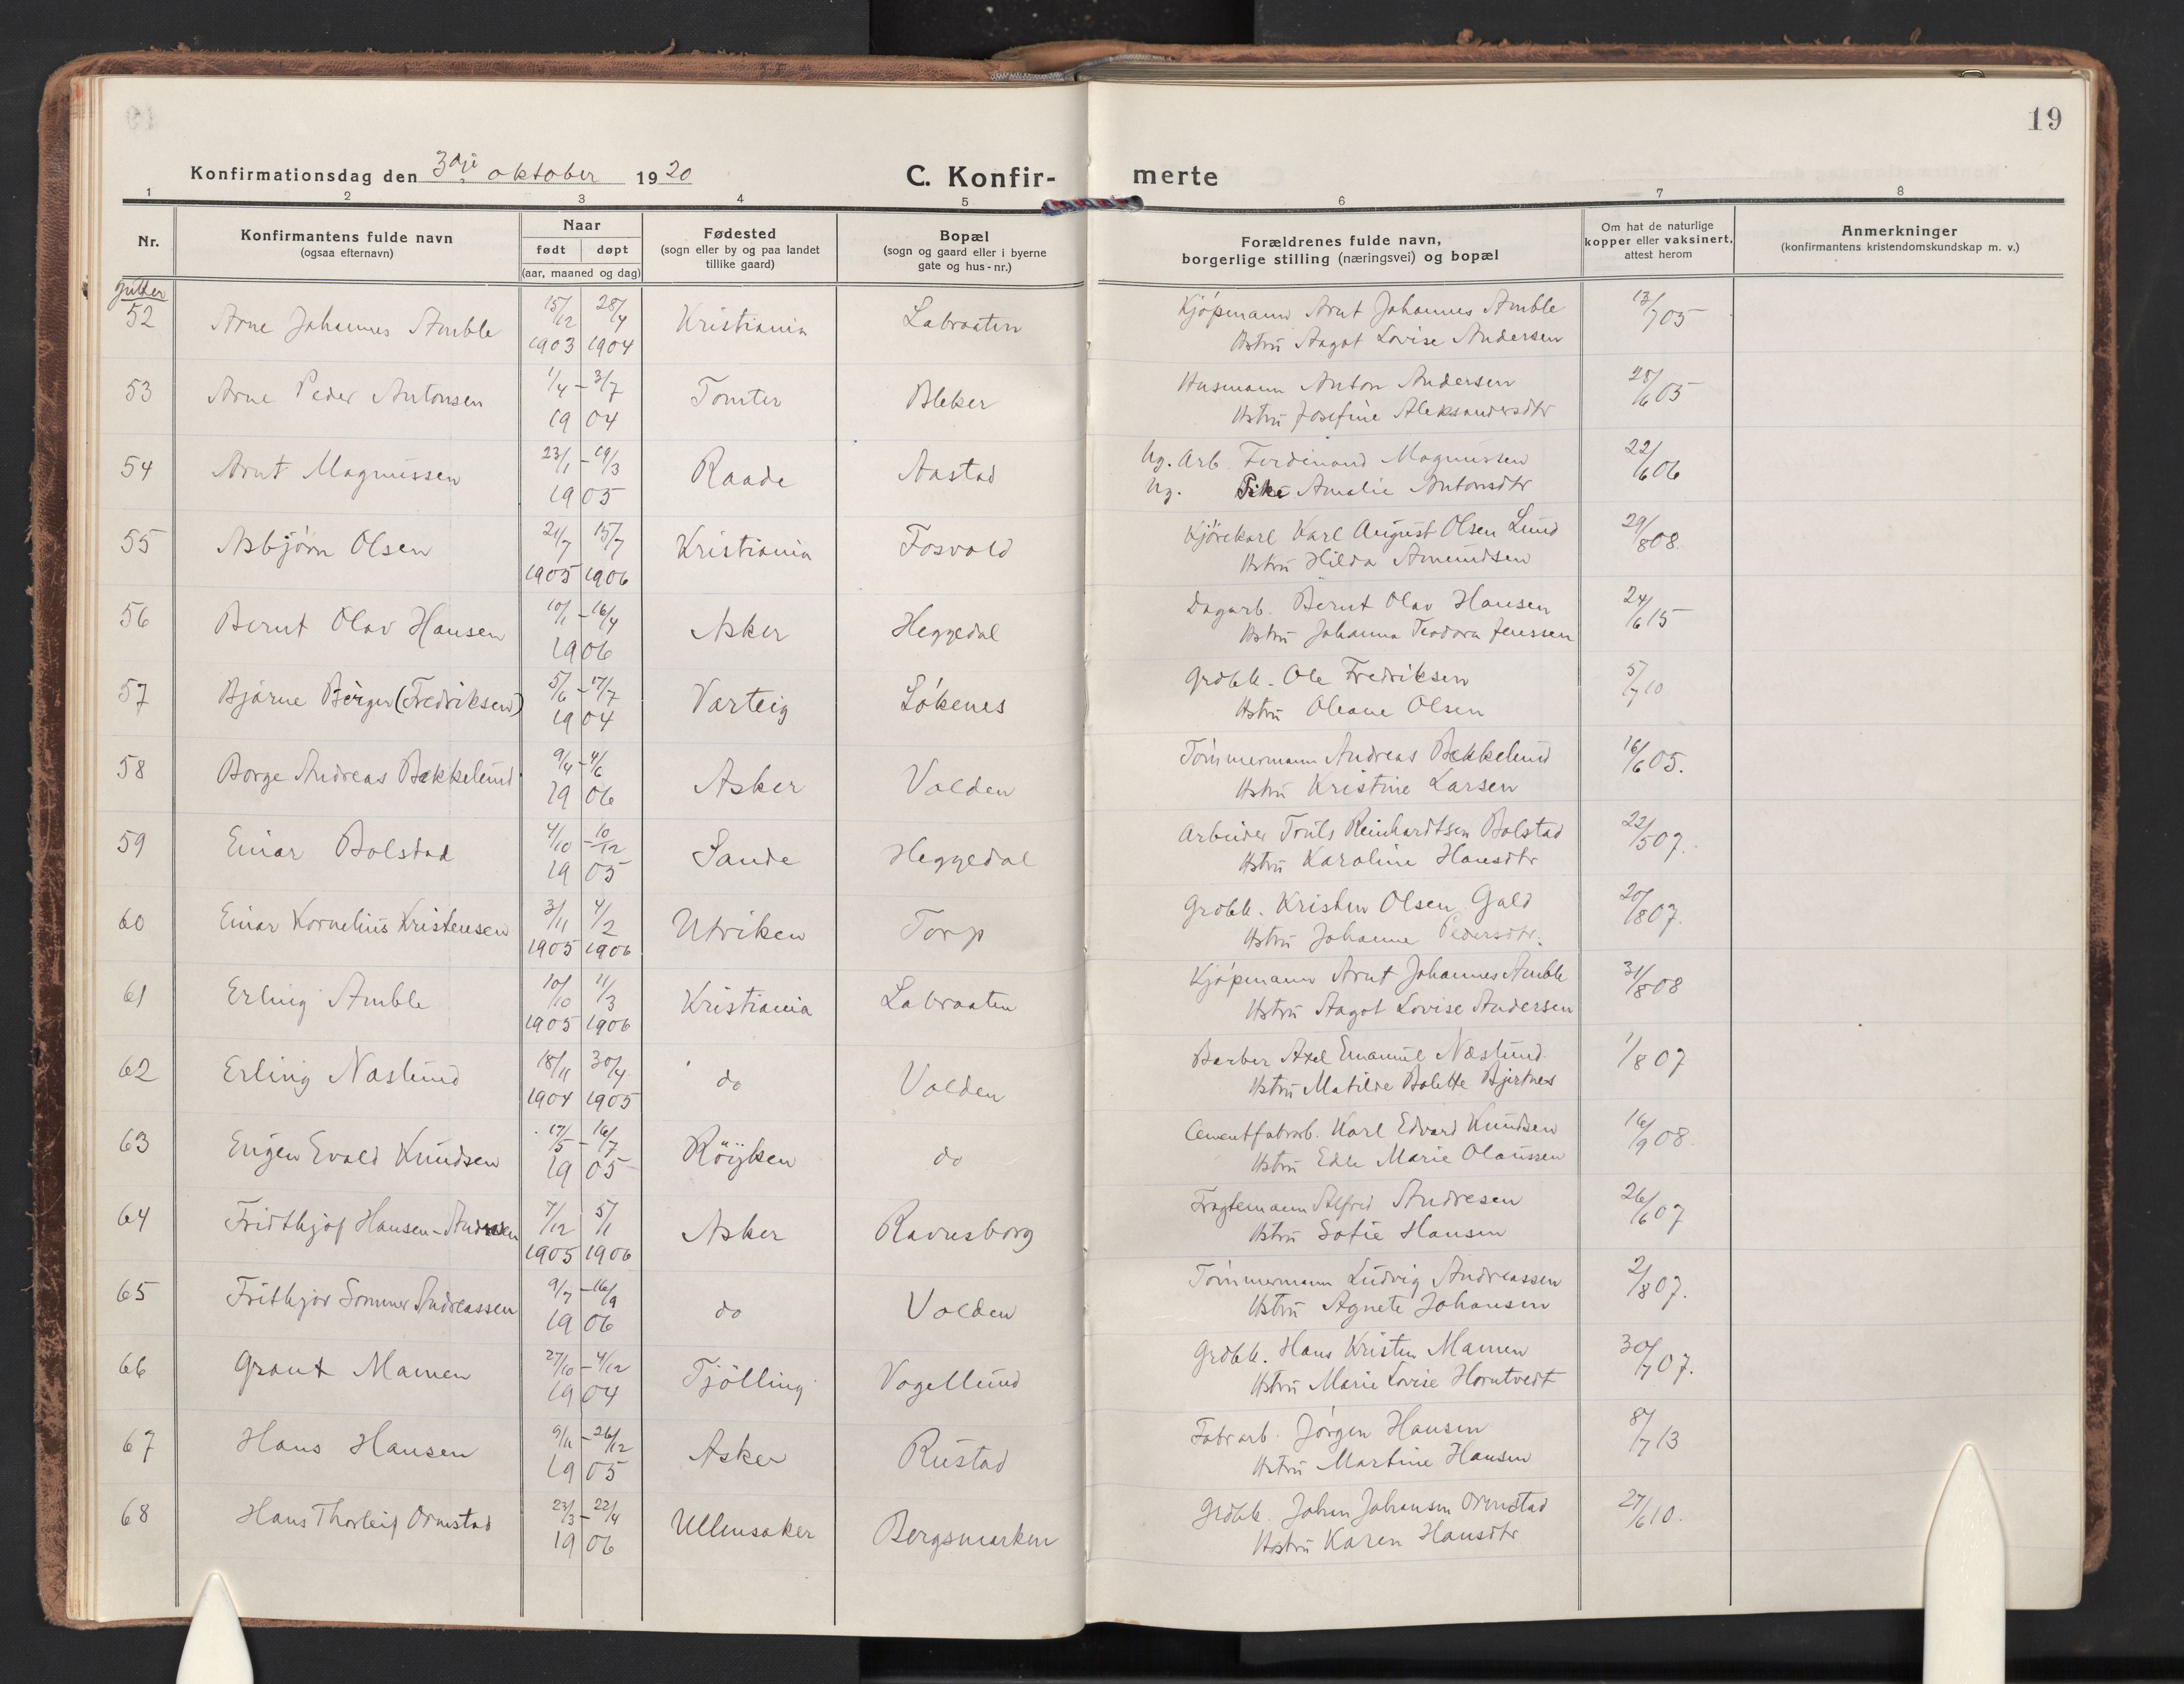 19
Konfirmationsdag den 3dje oktober 1920
C. Konfir-merte
1 2 3 4 5 6 7 8
Nr.
Konfirmantens fulde navn
(ogsaa efternavn)
Naar
født døpt
(aar, maaned og dag)
Fødested
(sogn eller by og paa landet
tillike gaard)
Bopæl
(sogn og gaard eller i byerne
gate og hus-nr.)
Forældrenes fulde navn,
borgerlige stilling (næringsvei) og bopæl
Om hat de naturlige
kopper eller vaksinert,
attest herom
Anmerkninger
(konfirmantens kristendomskundskap m. v.)
Gutter
52 Arne Johannes Amble 15/12 1903 28/4 1904 Kristiania Labraaten Kjøpmann Arnt Johannes Amble 13/7 05
Hstru Aagot Lovise Andersen
53 Arne Peder Antonsen 1/4 - 3/7 1904 Tomter Bleker Husmann Anton Andersen 28/6 05
Hstru Josefine Aleksandersdtr
54 Arnt Magnussen 23/1 - 19/3 1905 Raade Aastad Ug. Arb. Ferdinand Magnussen 22/6 06
Ug. Pike Amalie Antonsdtr
55 Asbjørn Olsen 21/7 1905 15/7 1906 Kristiania Fosvold Kjørekarl Karl August Olsen Lund 29/8 08.
Hstru Hilda Amundsen
56 Bernt Olav Hansen 10/1 - 16/4 1906 Asker Heggedal Dagarb. Bernt Olav Hansen 24/6 15
Hstru Johanna Teodora Jenssen
57 Bjarne Berger (Fredriksen) 5/6 - 17/7 1904 Varteig Løkenes Grdbb. Ole Fredriksen 5/7 10
Hstru Oleane Olsen
58 Borge Andreas Bekkelund 9/4 - 4/6 1906 Asker Valden Tømmermann Andreas Bekkelund 16/6 05.
Hstru Kristine Larsen
59 Einar Bolstad 4/10 - 10/12 1905 Sande Heggedal Arbeider Reinhardtsen Bolstad 22/5 07.
Hstru Karoline Hansdtr
60 Einar Kornelius Kristensen 3/11 1905 4/2 1906 Utriken Torp Grdbb. Kristen Olsen 20/8 07.
Hstru Johanne Pedersdtr.
61 Erling Amble 10/10 1905 11/3 1906 Kristiania Labraaten Kjøpmann Arnt Johannes Amble 31/8 08
Hstru Aagot Lovise Andersen
62 Erling Naslund 18/11 1904 30/4 1905 do Valden Barber Axel Emanuel Naslund 1/8 07
Hstru Matilde Bolette Bjertnes
63 Eugen Evald Knudsen 17/5 - 16/7 1905 Röyken do Cementfabrarb. Karl Edvard Knudsen 16/9 08.
Hstru Edle Marie Olaussen
64 Fridthjof Hansen-Andresen 7/12 1905 5/1 1906 Asker Ravnsborg Fragtemann Alfred Andresen 26/6 07
Hstru Sofie Hansen
65 Frithjov Sommer Andreassen 9/7 - 16/9 1906 do Valden Tømmermann Ludvig Andreassen 2/8 07.
Hstru Agnete Johansen
66 Grant Mamen 27/10 - 4/12 1904 Tjölling Vogellund Grdbb. Hans Kristen Mamen 30/7 07.
Hstru Marie Lovise Horntvedt
67 Hans Hansen 9/11 - 26/12 1905 Asker Rustad Fabrarb. Jørgen Hansen 8/7 13
Hstru Martine Hansen
68 Hans Thorleif Ormstad 23/3 - 22/4 1906 Ullensaker Bergsmarken Grdbb. Johan Johansen Ormstad 27/6 10.
Hstru Karen Hansdtr